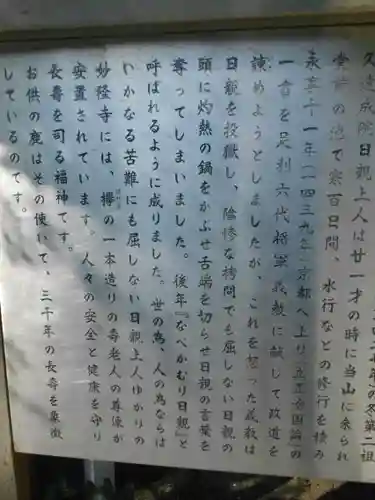 久遠成院日親上人は廿一才の時に当山に来られ
堂前の池で寒百日間、水行などの修行を積み
永享十一年(一四三九年)京都へ上り立正治国論の
一書を足利六代将軍義教に献して政道を
諫めようとしましたが、これを怒った義教は
日親を投獄し、陰惨な拷問でも屈しない日親の
頭に灼熱の鍋をかぶせ舌端を切らせ日親の言葉を
奪ってしまいました。後年『なべかむり日親』と
呼ばれるように成りました。世の為、人の為ならば
いかなる苦難にも屈しない日親上人ゆかりの
妙経寺には、欅の一本造りの寿老人の尊像が
安置されています。人々の安全と健康を守り
長寿を司る福神てす。
お供の鹿はその使いて、三千年の長寿を象徴
しているのです。